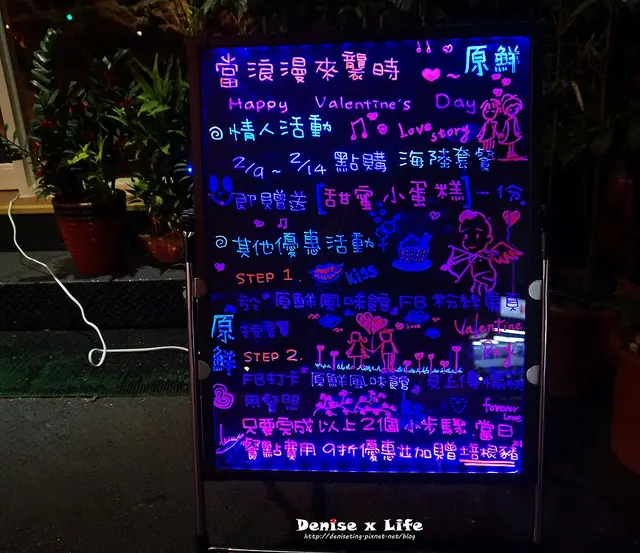 當浪漫來襲時
原鮮
Happy Valentine's Day
情人活動 Love story
2/9~2/14 點購 海陸套餐
即贈送[甜蜜小蛋糕]一份
其他優惠活動
STEP 1. kiss
於 原鮮風味館 FB 粉絲專頁
按讚
Valentine Day
原鮮
STEP 2.
FB打卡 原鮮風味館
用餐照
forever Love
只要完成以上2個小步驟.當日
餐點費用9折優惠並加贈培根豬
Denise x Life
http://deniseting.pixnet.net/blog